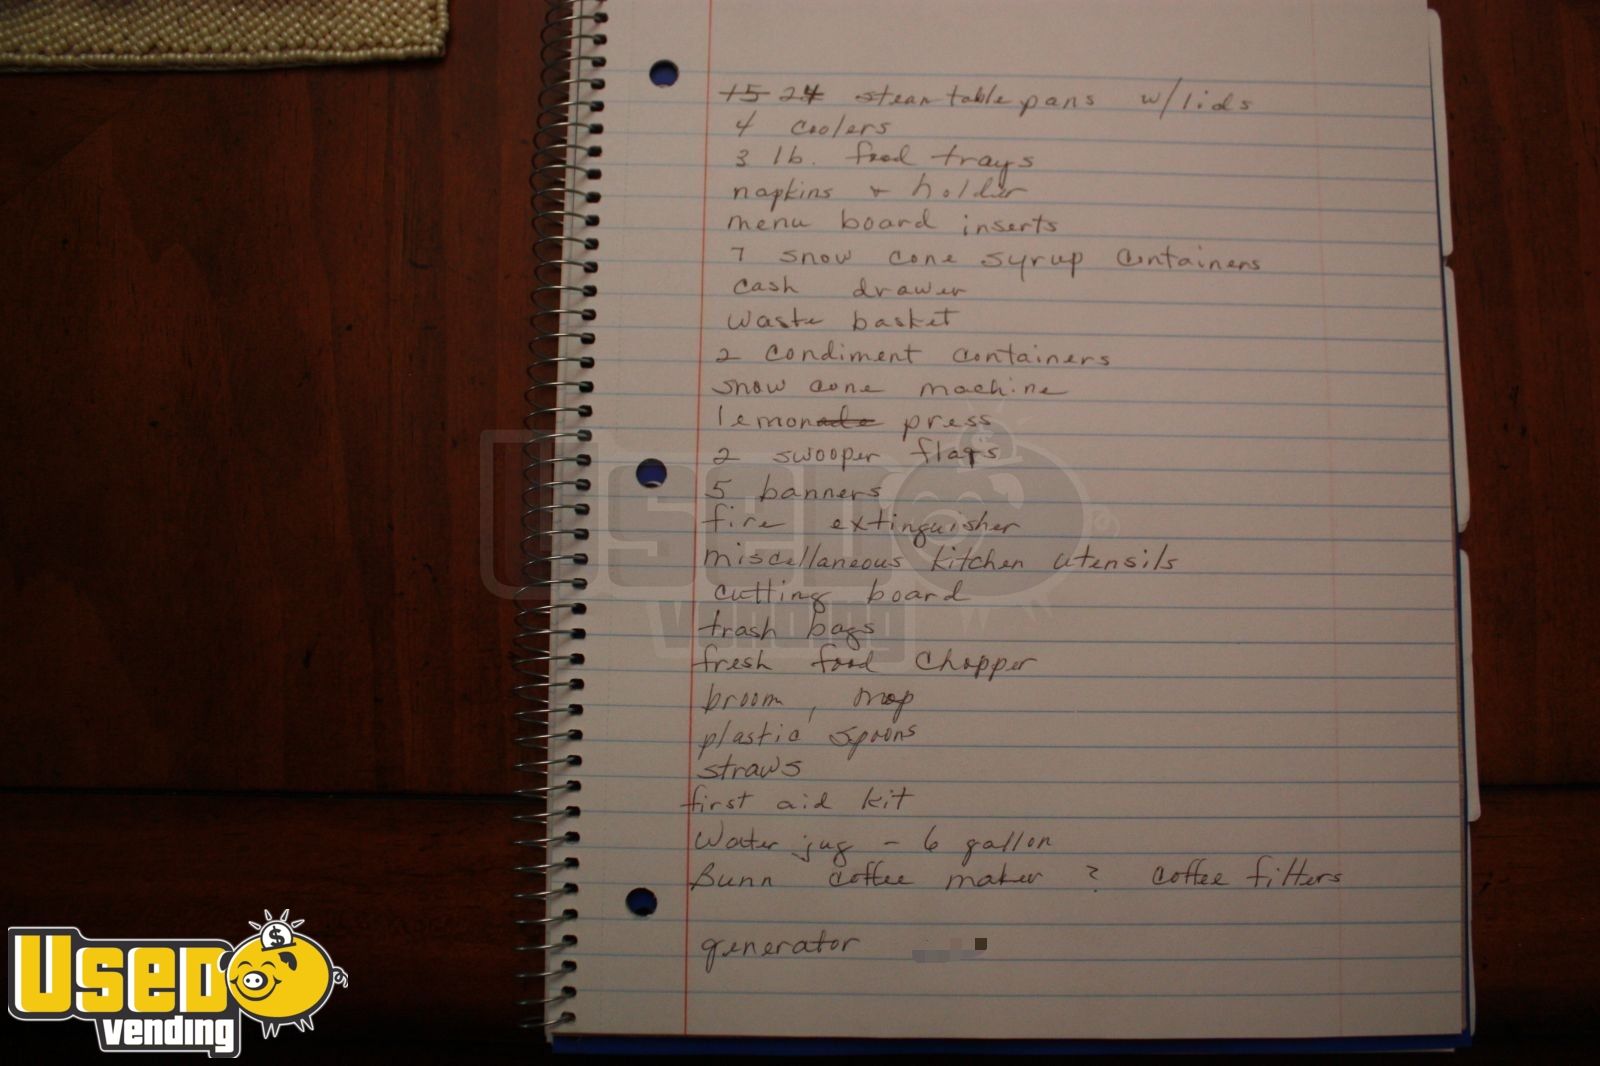 15 24 steam table pans w/lids
4 coolers
3 lb. food trays
napkins + holder
menu board inserts
7 snow cone syrup containers
cash drawer
waste basket
2 condiment containers
snow cone machine
lemonade press
2 swooper flags
5 banners
fire extinguisher
miscellaneous kitchen utensils
cutting board
trash bags
fresh food chopper
broom, mop
plastic spoons
straws
first aid kit
Water jug - 6 gallon
Bunn coffee maker ? coffee filters
generator
USED
vending
USED
vending